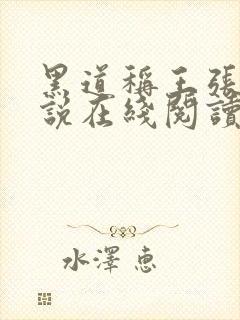 黑道稱王張
說在綫閱讀
水澤惠